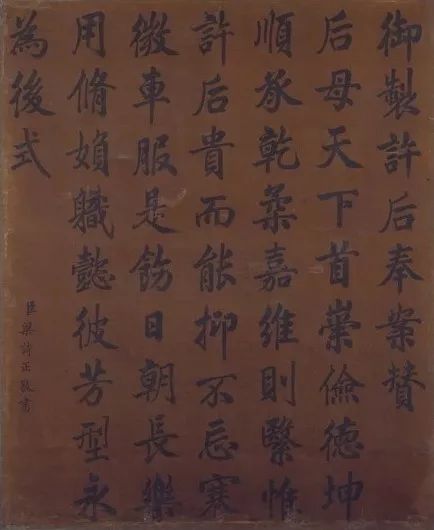 御製許后奉案賛
后母天下首崇儉徳坤
順承乾柔嘉維則繄惟
許后貴而能抑不忘寒
微車服是飭日朝長樂
用脩媍軄懿彼芳型永
為後式
臣梁詩正敬書